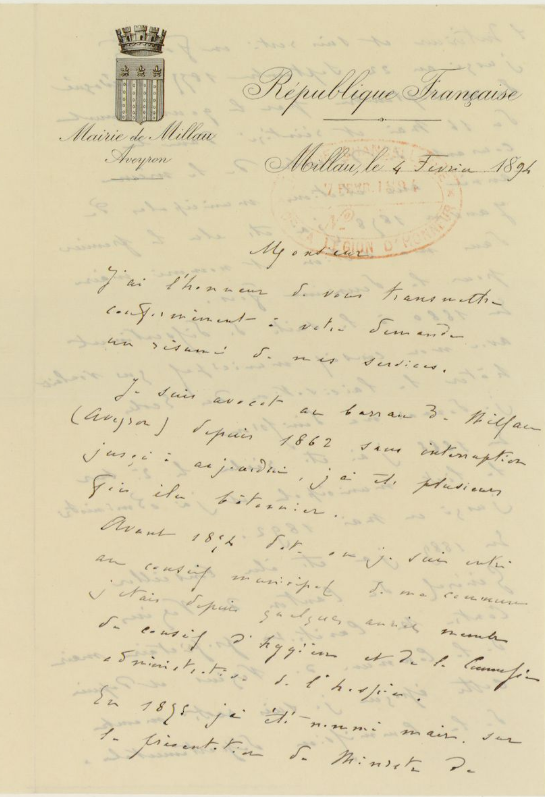 République Française
Mairie de Millau
Aveyron
Millau, le 4 Février 1894
LEGION D'HONNEUR
Monsieur
J'ai l'honneur de vous transmettre
conformément à votre demande
un résumé de mes services.
Je suis avocat au barreau de Millau
(Aveyron) depuis 1862 sans interruption
jusqu'à aujourdhui, j'ai été plusieurs
fois élu bâtonnier.
Avant 1874 date où je suis entré
au conseil municipal de ma commune
j'étais depuis quelques années membre
du conseil d'hygiène et de la Commission
administrative de l'hospice.
En j'ai été nommé maire sur
la présentation du Ministre de